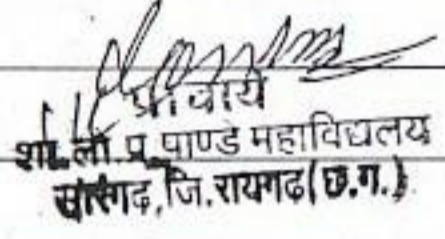 प्राचार्य
शा. लो. प्र. पाण्डे महाविद्यालय
सारंगढ, जि. रायगढ (छ.ग.)